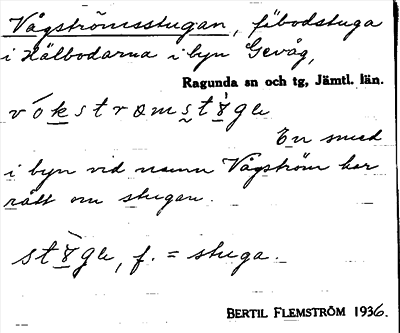 Vågströmsstugan, fäbodstuga
i Hälbodarna i byn Gevåg,
Ragunda sn och tg, Jämtl. län.
En smed
i byn vid namn Vågström har
rått om stugan.
f. = stuga.
BERTIL FLEMSTRÖM 1936.